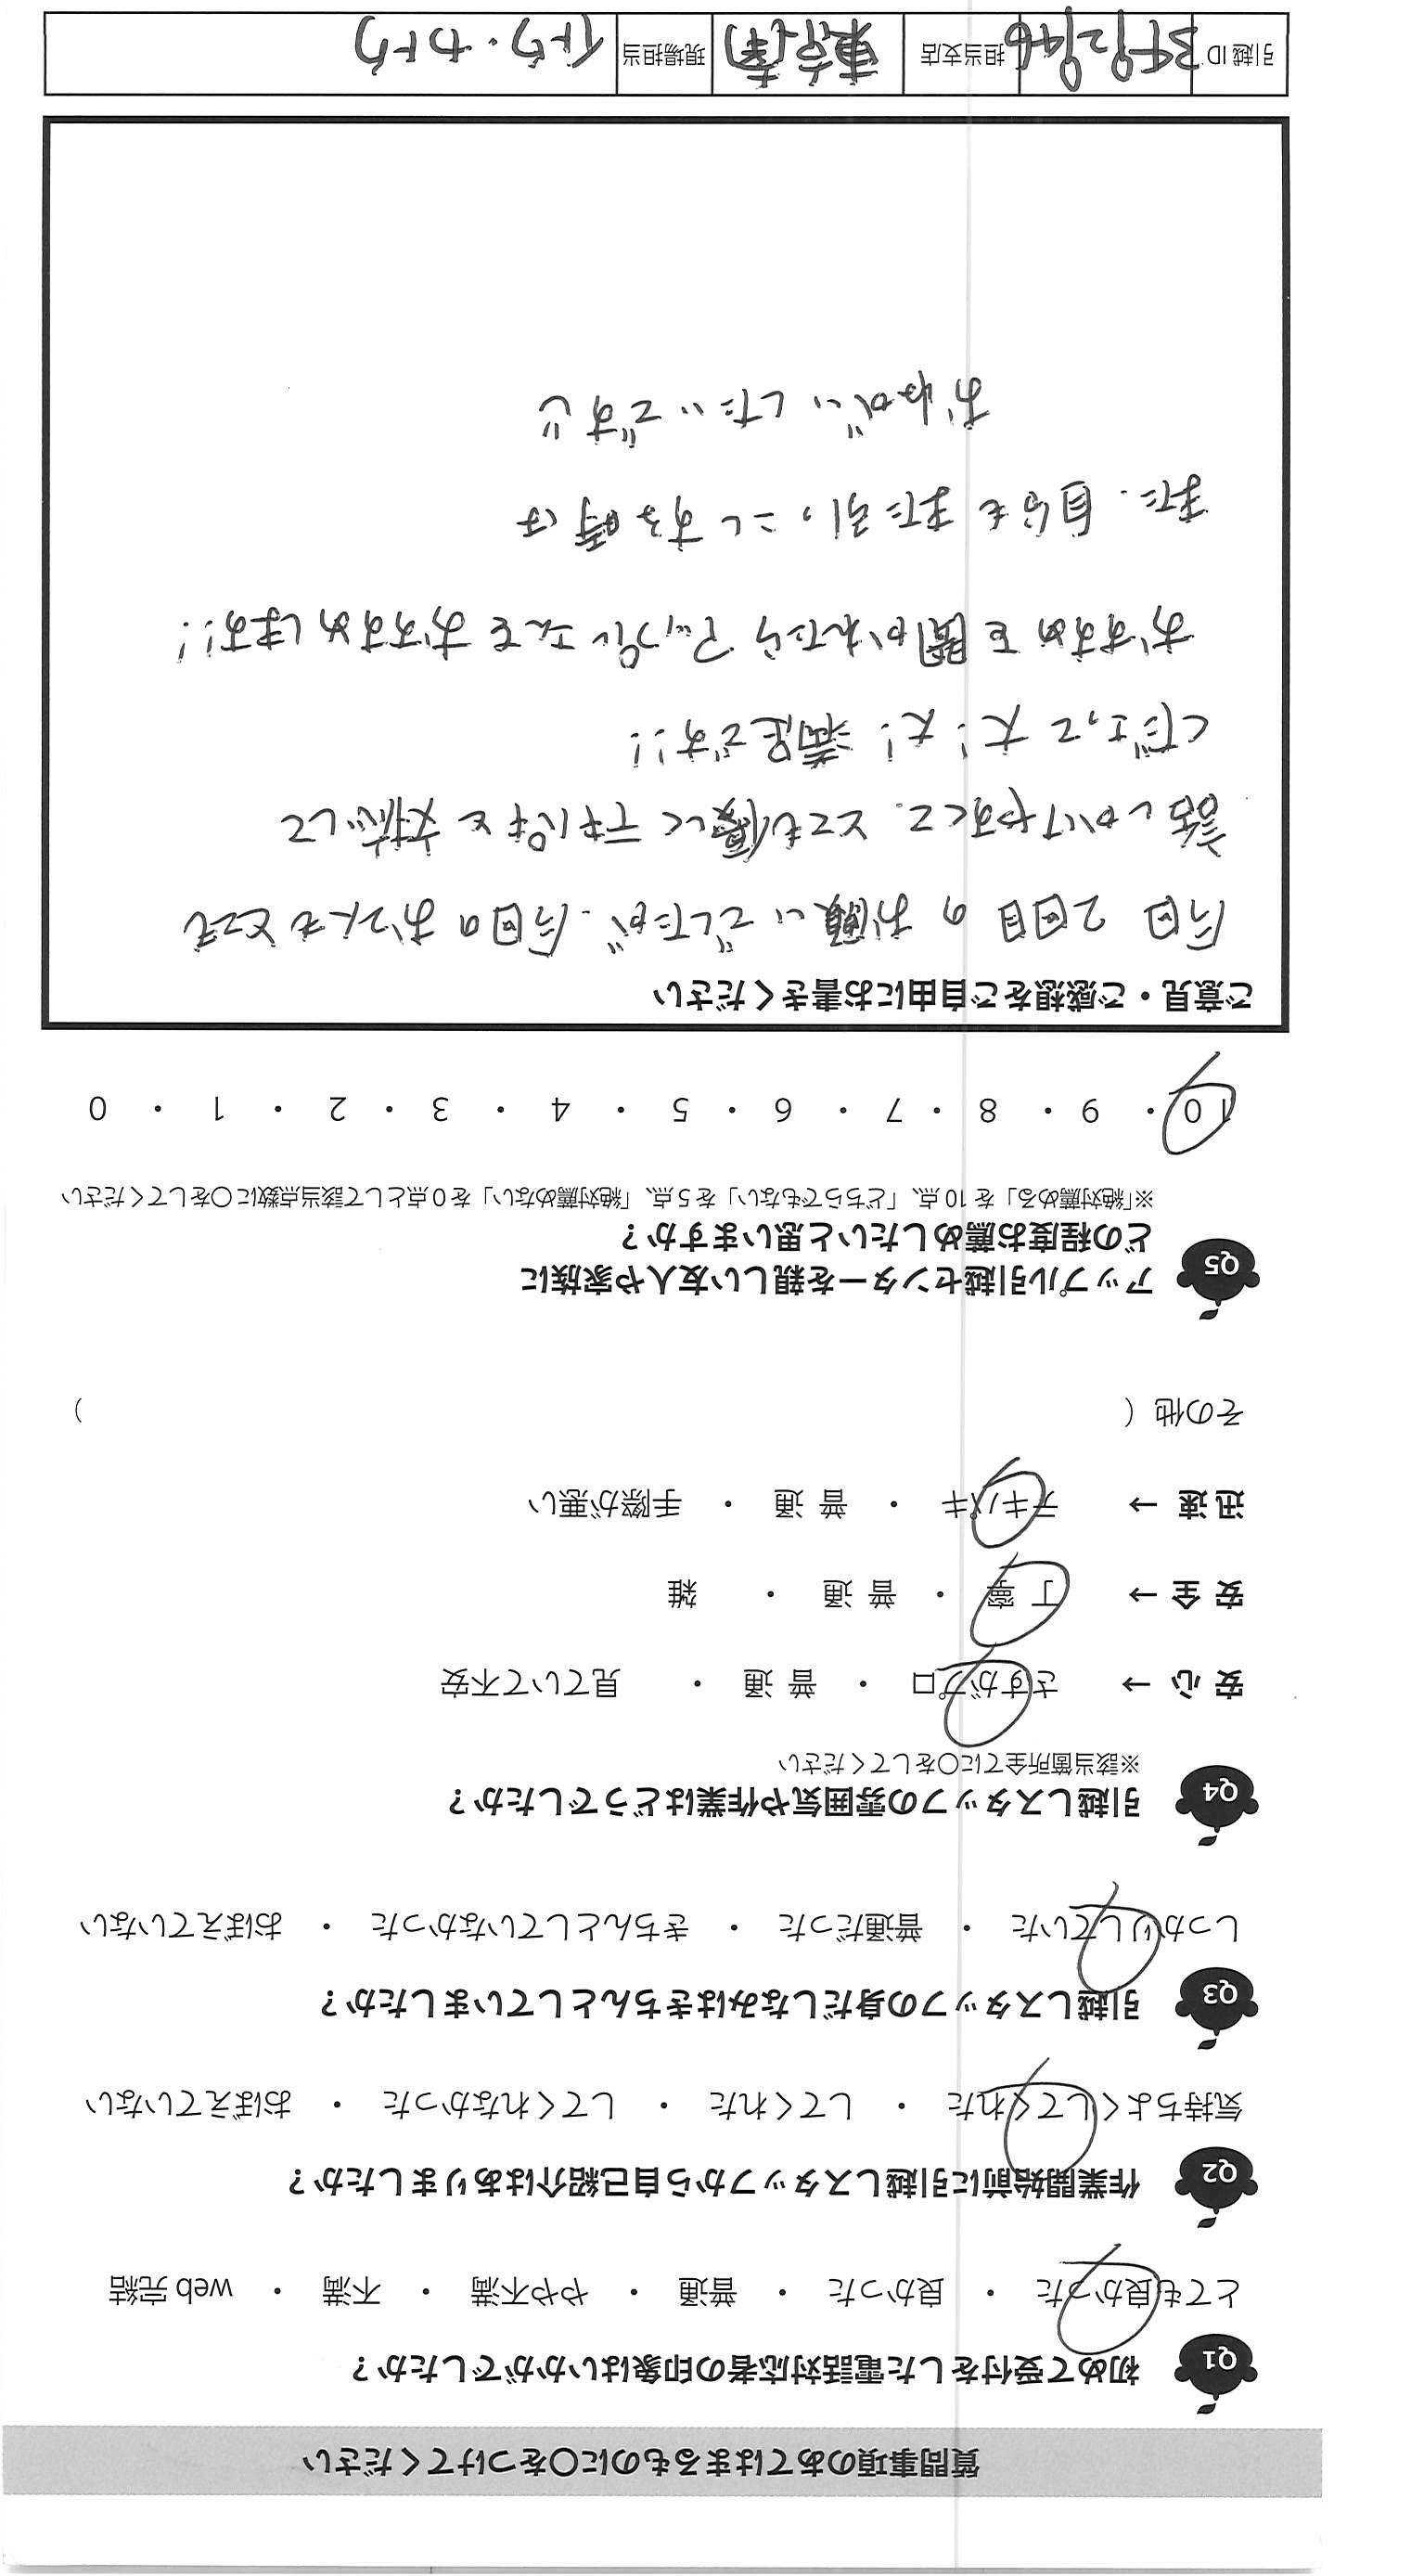 質問事項のあてはまるものに○をつけてください
Q1 初めて受付をした電話対応者の印象はいかがでしたか？
とても良かった ・ 良かった ・ 普通 ・ やや不満 ・ 不満 ・ web 完結
Q2 作業開始前に引越しスタッフから自己紹介はありましたか？
気持ちよくしてくれた ・ してくれた ・ してくれなかった ・ おぼえていない
Q3 引越しスタッフの身だしなみはきちんとしていましたか？
しっかりしていた ・ 普通だった ・ きちんとしていなかった ・ おぼえていない
Q4 引越しスタッフの雰囲気や作業はどうでしたか？
※該当箇所全てに○をしてください
安 心 → さすがプロ ・ 普 通 ・ 見ていて不安
安 全 → 丁 寧 ・ 普 通 ・ 雑
迅 速 → テキパキ ・ 普 通 ・ 手際が悪い
その他（ ）
Q5 アップル引越センターを親しい友人や家族に
どの程度お薦めしたいと思いますか？
※「絶対薦める」を 10 点、「どちらでもない」を 5 点、「絶対薦めない」を 0 点として該当点数に○をしてください
10 ・ 9 ・ 8 ・ 7 ・ 6 ・ 5 ・ 4 ・ 3 ・ 2 ・ 1 ・ 0
ご意見・ご感想をご自由にお書きください
今回 2回目の お願いでしたが、今回の お二人も とっても
話しかけやすくて、とても優しく テキパキと 対応して
くださって 大！大！満足です！！
おすすめを聞かれたら アップルさんを おすすめします！！
また、自分も また引っこしする時は
おねがいしたいです
引越 ID 担当支店 東京(南) 現場担当 イトウ・カトウ